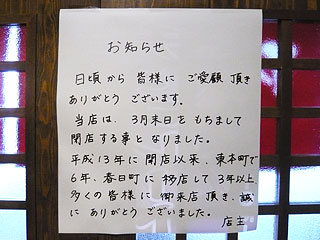 お知らせ
日頃から 皆様に ご愛顧 頂き
ありがとう ございます。
当店は、3月末日を もちまして
閉店する事と なりました。
平成13年に 開店以来、東本町で
6年、春日町に 移店して 3年以上
多くの 皆様に 御来店 頂き、誠
に ありがとう ございました。
店主